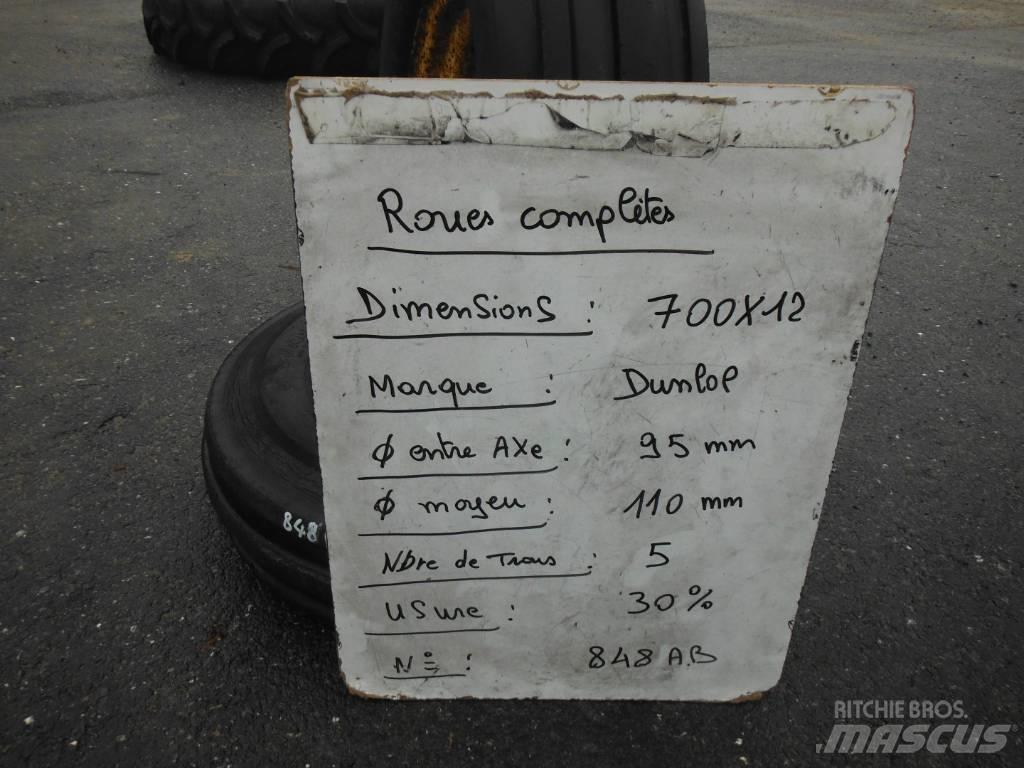 Roues complètes
Dimensions : 700X12
Marque : Dunlop
Φ entre AXe : 95 mm
Φ moyeu : 110 mm
Nbre de Trous : 5
USure : 30%
N° : 848 AB
848
RITCHIE BROS.
MASCUS